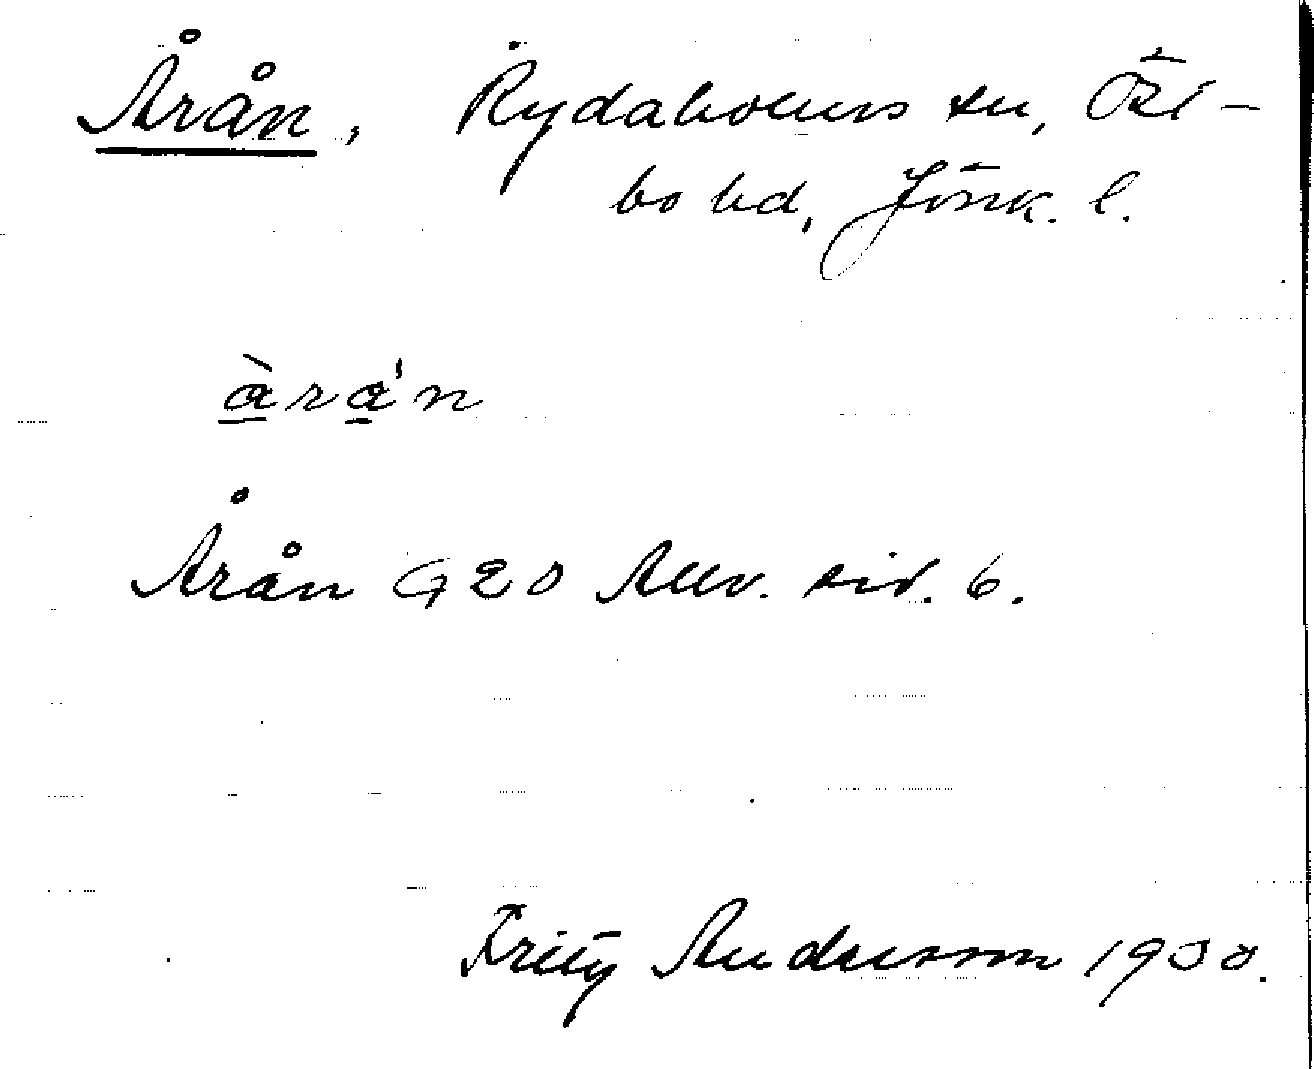 Årån, Rydaholms sn, Öst-
bo hd, Jönk. l.
àrá'n
Årån G 20 Allv. sid. 6.
Fritz Andersson 1930.